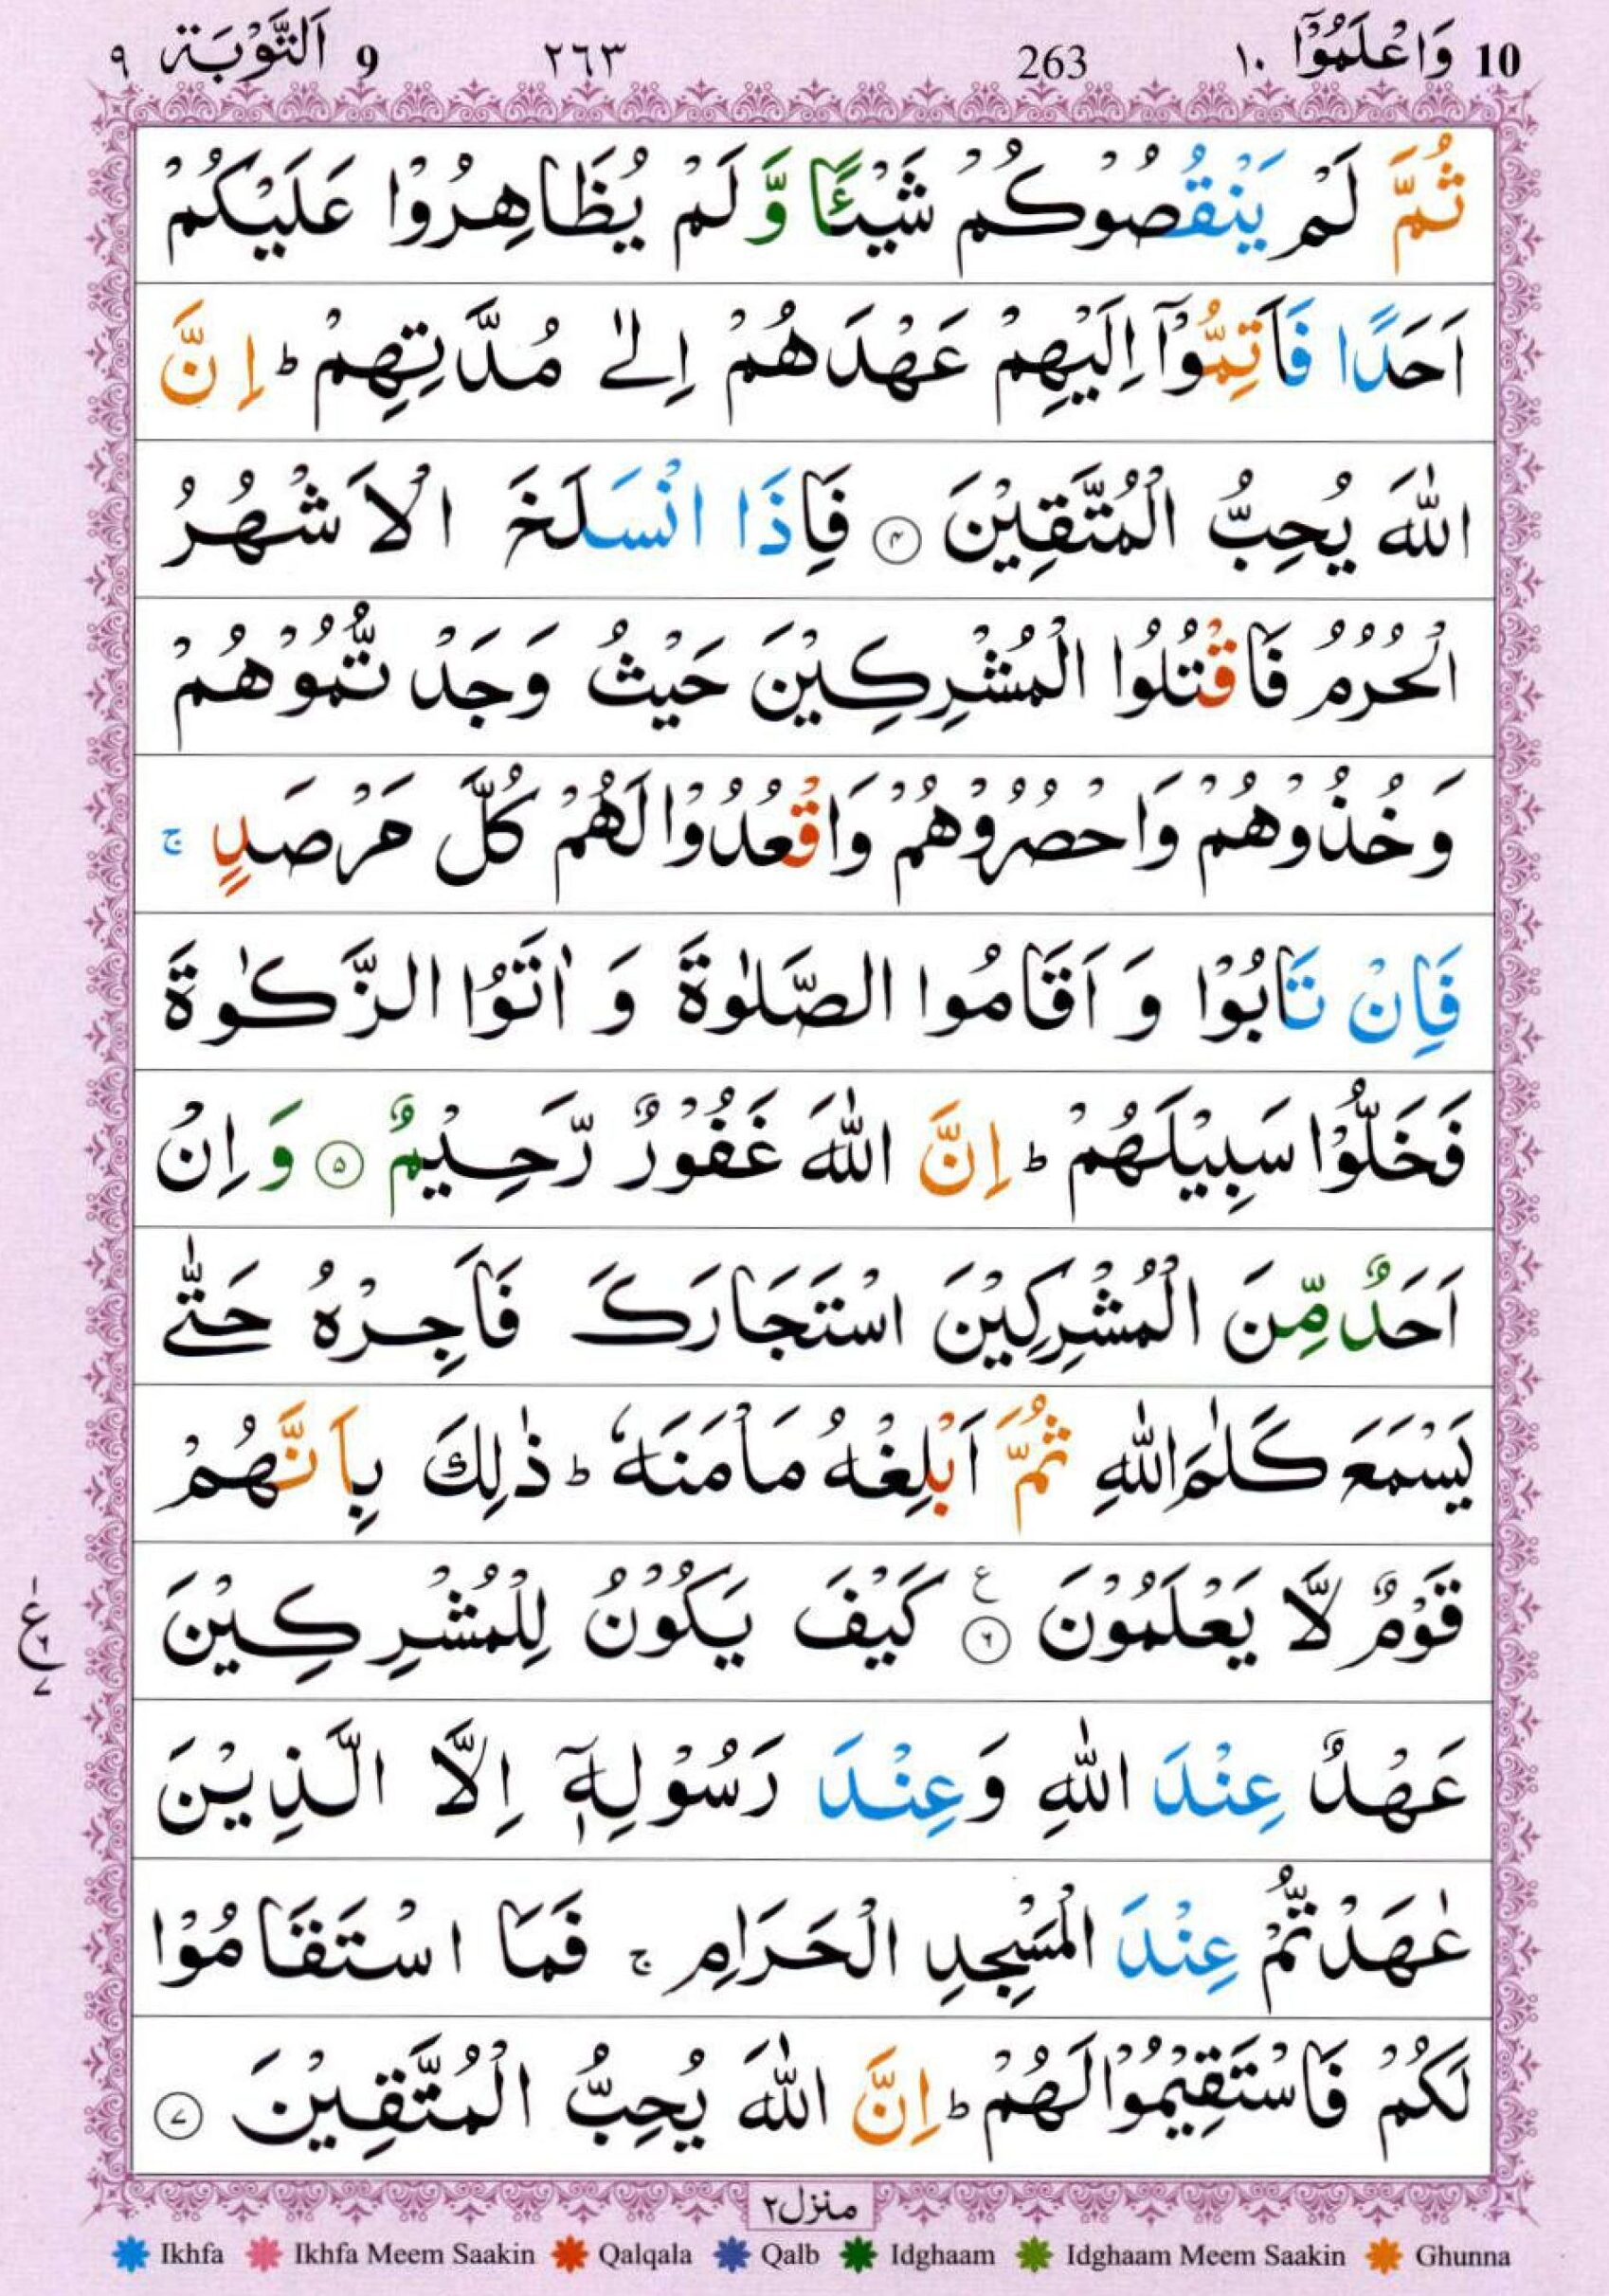 10 وَاعْلَمُوْٓا ١٠ 263 ٢٦٣ 9 اَلتَّوْبَة ٩
ثُمَّ لَمْ يَنْقُصُوْكُمْ شَيْـًٔا وَّلَمْ يُظَاهِرُوْا عَلَيْكُمْ
اَحَدًا فَاَتِمُّوْٓا اِلَيْهِمْ عَهْدَهُمْ اِلٰى مُدَّتِهِمْ ؕ اِنَّ
اللّٰهَ يُحِبُّ الْمُتَّقِيْنَ ۴ فَاِذَا انْسَلَخَ الْاَشْهُرُ
الْحُرُمُ فَاقْتُلُوا الْمُشْرِكِيْنَ حَيْثُ وَجَدْتُّمُوْهُمْ
وَخُذُوْهُمْ وَاحْصُرُوْهُمْ وَاقْعُدُوْا لَهُمْ كُلَّ مَرْصَدٍ ۚ
فَاِنْ تَابُوْا وَ اَقَامُوا الصَّلٰوةَ وَ اٰتَوُا الزَّكٰوةَ
فَخَلُّوْا سَبِيْلَهُمْ ؕ اِنَّ اللّٰهَ غَفُوْرٌ رَّحِيْمٌ ۵ وَ اِنْ
اَحَدٌ مِّنَ الْمُشْرِكِيْنَ اسْتَجَارَكَ فَاَجِرْهُ حَتّٰى
يَسْمَعَ كَلٰمَ اللّٰهِ ثُمَّ اَبْلِغْهُ مَاْمَنَهٗ ؕ ذٰلِكَ بِاَنَّهُمْ
قَوْمٌ لَّا يَعْلَمُوْنَ ۶ ع كَيْفَ يَكُوْنُ لِلْمُشْرِكِيْنَ
١ ع ٦ ٧
عَهْدٌ عِنْدَ اللّٰهِ وَعِنْدَ رَسُوْلِهٖٓ اِلَّا الَّذِيْنَ
عٰهَدْتُّمْ عِنْدَ الْمَسْجِدِ الْحَرَامِ ۚ فَمَا اسْتَقَامُوْا
لَكُمْ فَاسْتَقِيْمُوْا لَهُمْ ؕ اِنَّ اللّٰهَ يُحِبُّ الْمُتَّقِيْنَ ۷
منزل٢
Ikhfa Ikhfa Meem Saakin Qalqala Qalb Idghaam Idghaam Meem Saakin Ghunna